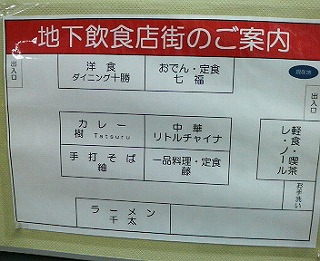 地下飲食店街のご案内
出入口
洋食
ダイニング十勝
おでん・定食
七福
現在地
出入口
カレー
樹 Tatsuru
中華
リトルチャイナ
手打そば
紬
一品料理・定食
藤
軽食・喫茶
レ・ノール
お手洗い
ラーメン
千太